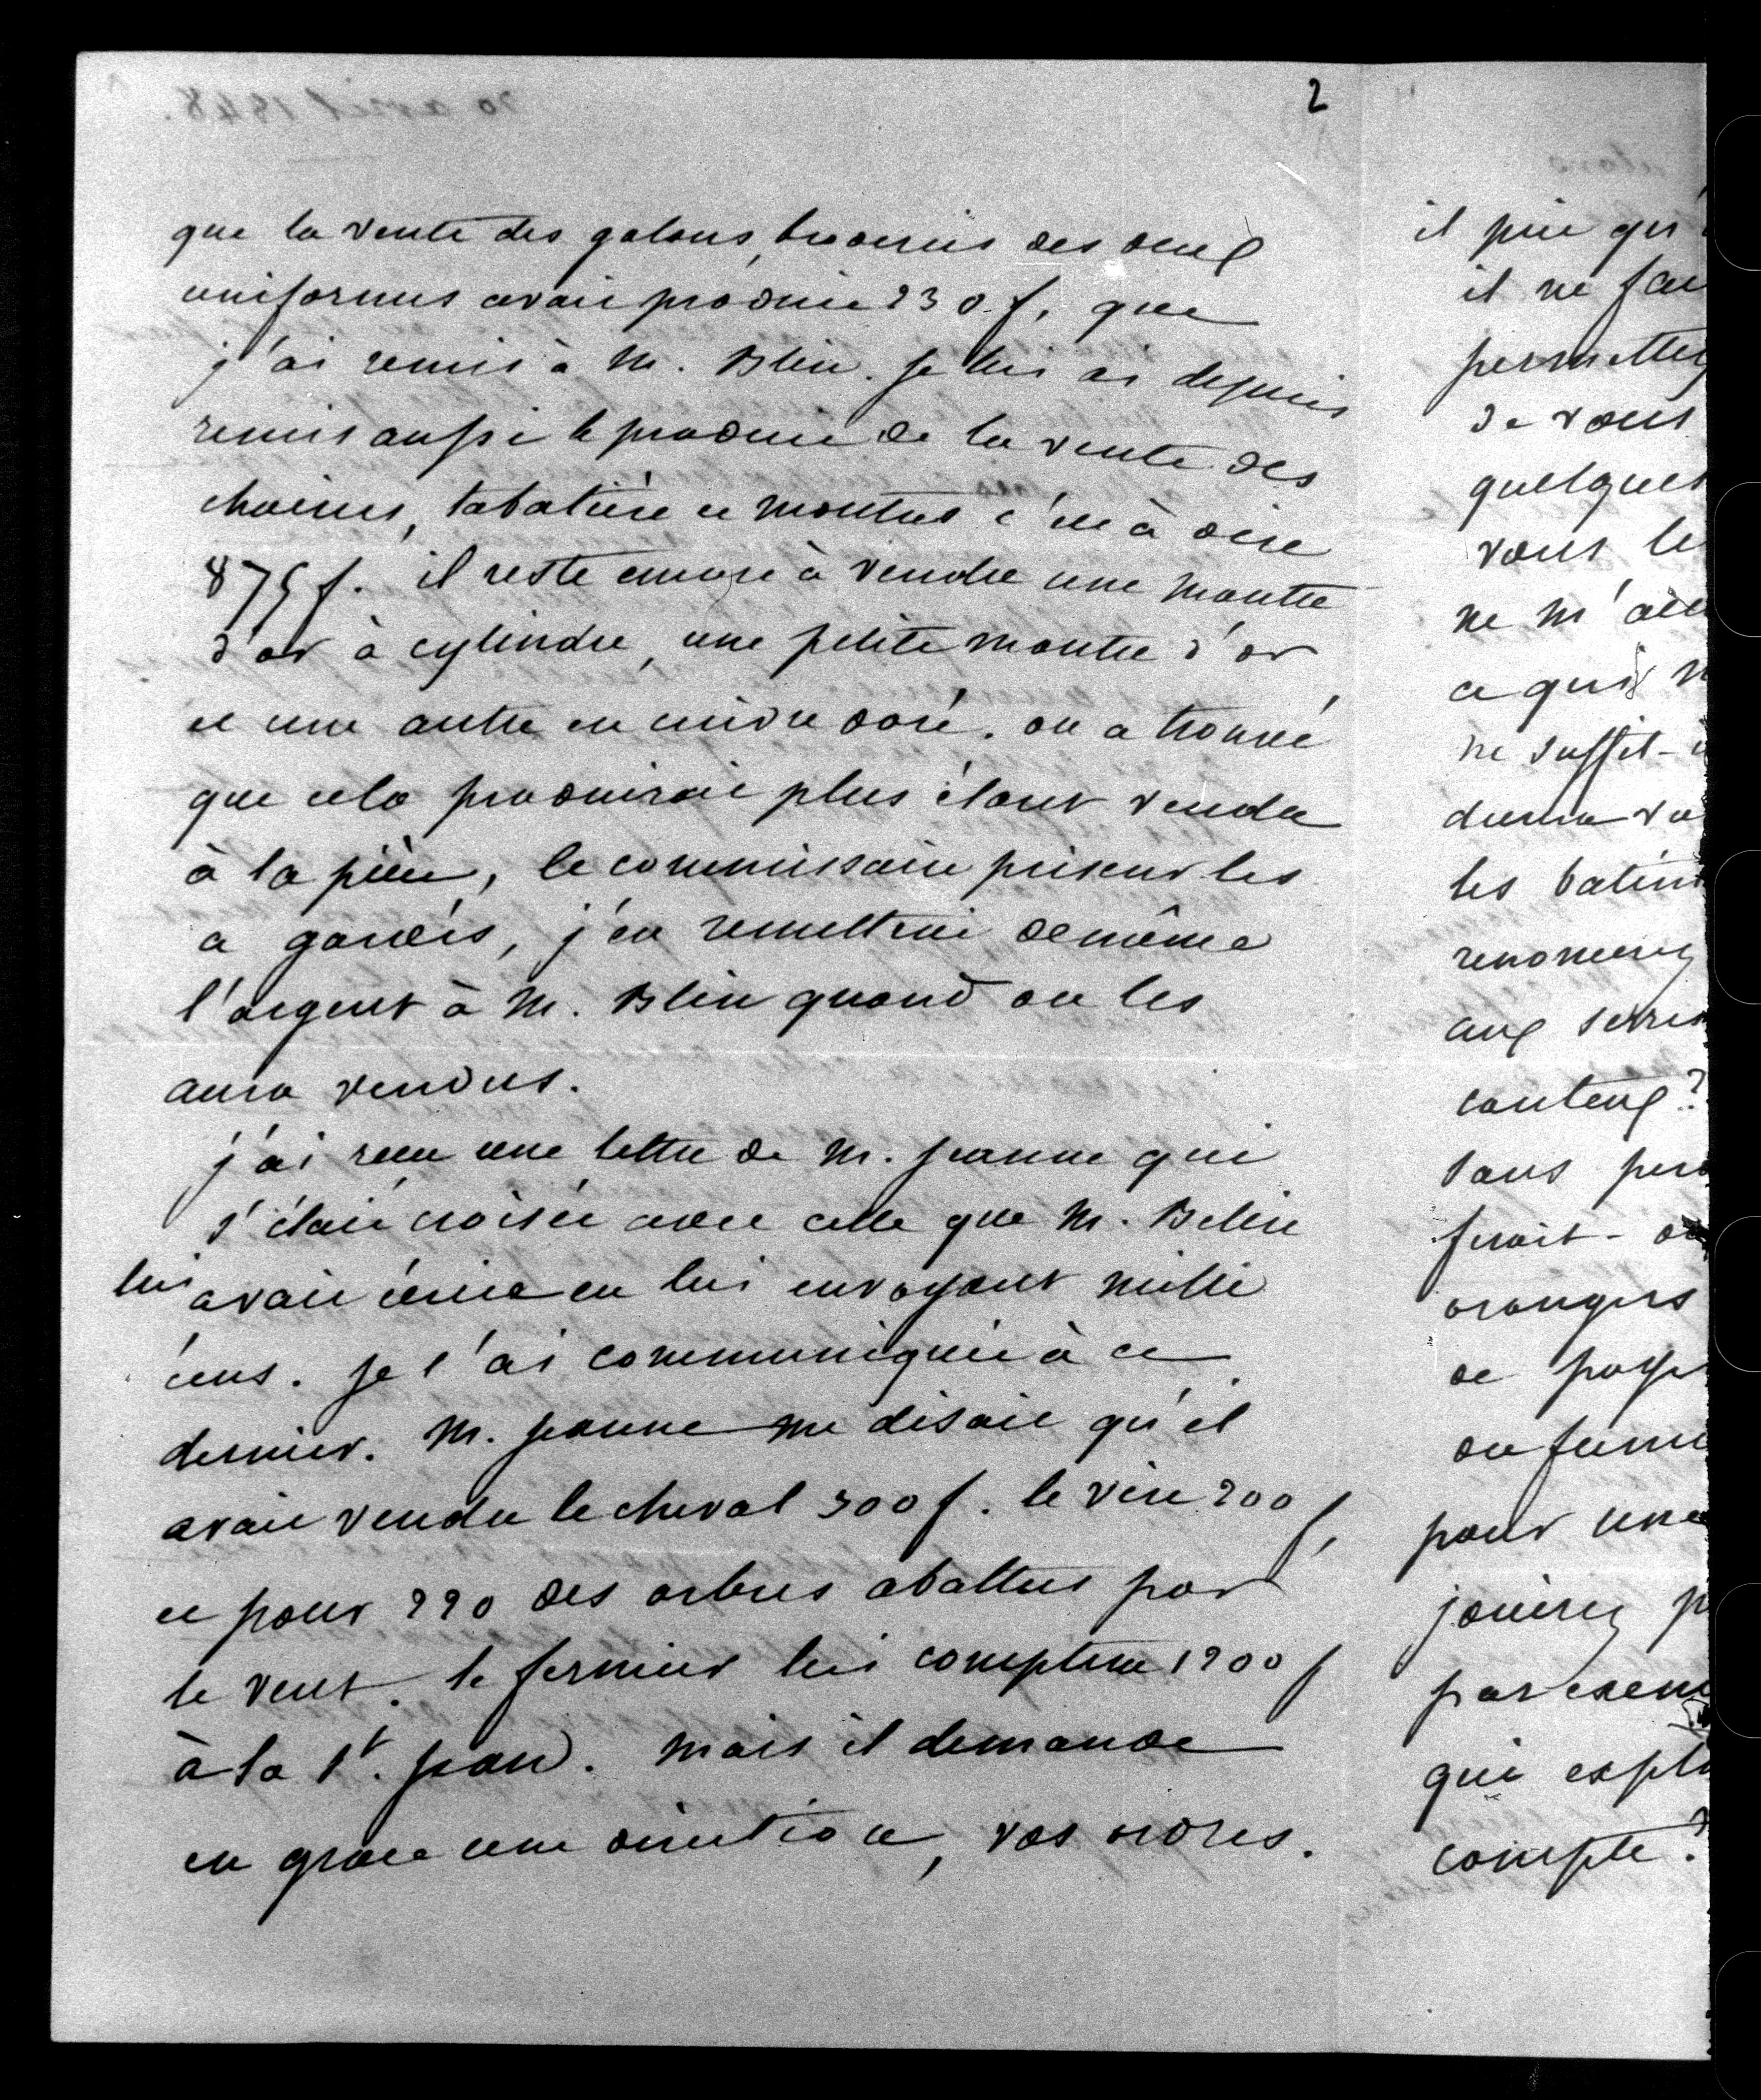 2
que la vente des galons, broderies des deux
uniformes avait produit 230 f. que
j'ai remis à M. Blin. je lui ai depuis
remis aussi le produit de la vente des
chaines, tabatière et montres c'est à dire
875 f. il reste encore à vendre une montre
d'or à cylindre, une petite montre d'or
et une autre en cuivre doré. on a trouvé
que cela produirait plus étant vendu
à la pièce, le commissaire priseur les
a gardés, j'en remettrai de même
l'argent à M. Blin quand on les
aura vendus.
j'ai reçu une lettre de M. Jeanne qui
s'était croisée avec celle que M. Belin
lui avait écrite en lui envoyant mille
écus. je l'ai communiquée à ce
dernier. M. Jeanne me disait qu'il
avait vendu le cheval 300 f. le 200 f,
et pour 220 des arbres abattus par
le vent. le fermier lui comptera 1200 f
à la St. Jean. mais il demande
en grace une direction, vos ordres.
il
il ne
permettez
de vous
quelques
vous
ne m'
ce qui
ne suffit-
les
aux
conteux?
sans
ferait-
orangers
de
pour une
par
qui
compte?
20 avril 1848.